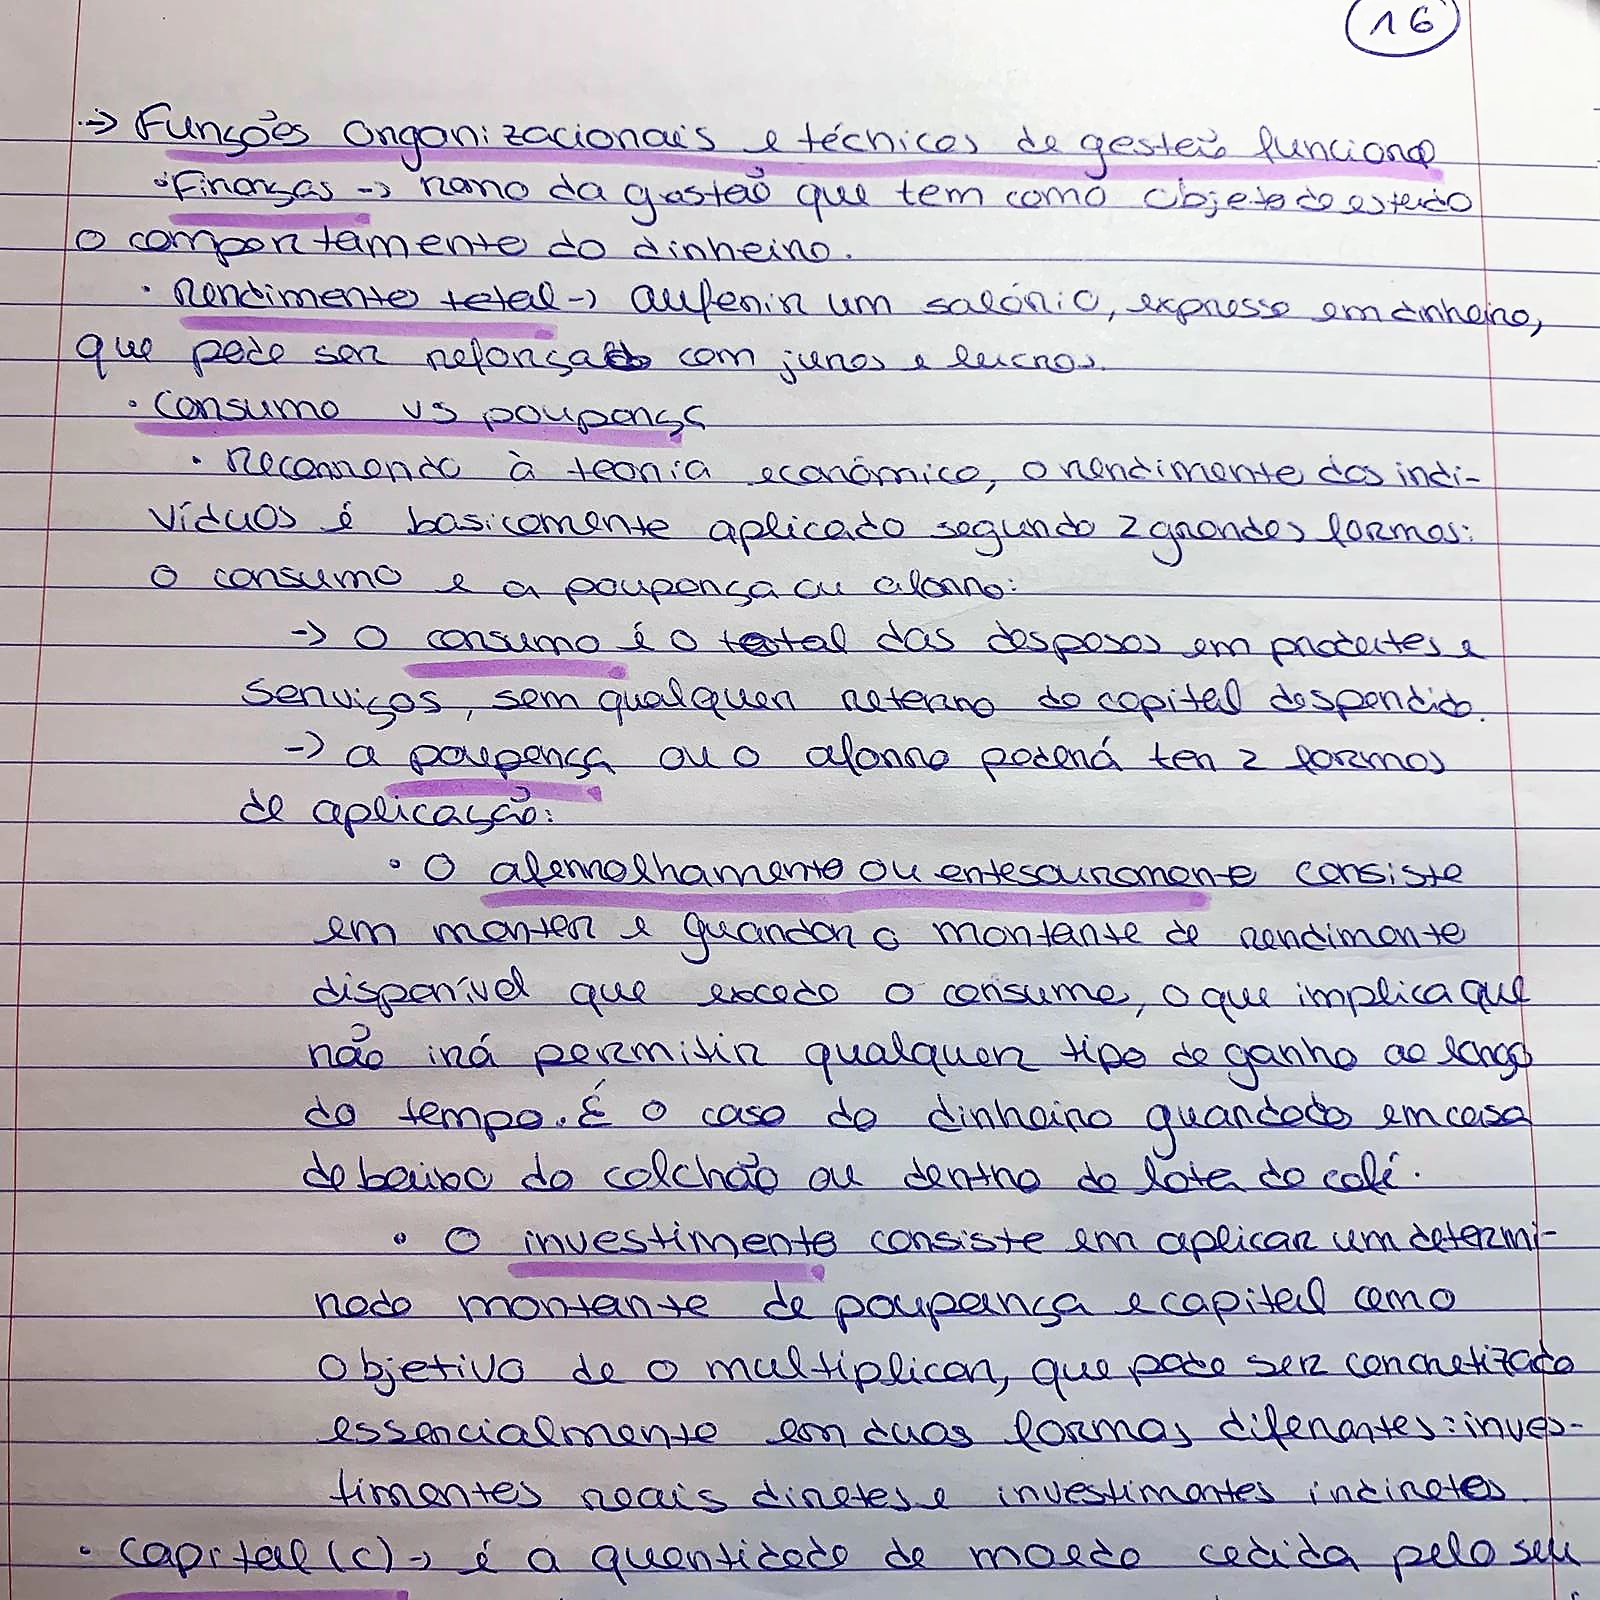 16
-> Funções organizacionais e técnicas de gestão funcional
· Finanças -> ramo da gestão que tem como objeto de estudo
o comportamento do dinheiro.
· rendimento total -> auferir um salário, expresso em dinheiro,
que pode ser reforçado com juros e lucros.
· consumo vs poupança
· recorrendo à teoria económica, o rendimento dos indi-
víduos é basicamente aplicado segundo 2 grandes formas:
o consumo e a poupança ou aforro:
-> O consumo é o total das despesas em produtos e
serviços, sem qualquer retorno do capital despendido.
-> a poupança ou o aforro poderá ter 2 formas
de aplicação:
· O aferrolhamento ou entesouramento consiste
em manter e guardar o montante de rendimento
disponível que excede o consumo, o que implica que
não irá permitir qualquer tipo de ganho ao longo
do tempo. É o caso do dinheiro guardado em casa
debaixo do colchão ou dentro da lata do café.
· O investimento consiste em aplicar um determi-
nado montante de poupança e capital como
objetivo de o multiplicar, que pode ser concretizado
essencialmente em duas formas diferentes: inves-
timentos reais diretos e investimentos indiretos.
· capital (c) -> é a quantidade de moeda cedida pelo seu